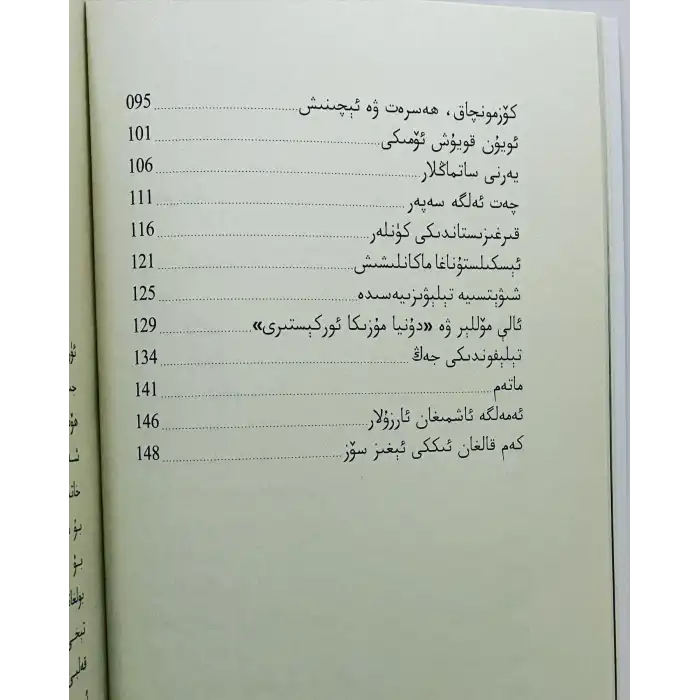 كۆزمونچاق، ھەسرەت ۋە ئېچىنىش 095
ئويۇن قويۇش ئۆمىكى 101
يەرنى ساتماڭلار 106
چەت ئەلگە سەپەر 111
قىرغىزىستاندىكى كۈنلەر 116
ئېسكىلستۇناغا ماكانلىشىش 121
شىۋېتسىيە تېلېۋىزىيەسىدە 125
ئالې مۆللېر ۋە «دۇنيا مۇزىكا ئوركېستىرى» 129
تېلېفوندىكى جەڭ 134
ماتەم 141
ئەمەلگە ئاشمىغان ئارزۇلار 146
كەم قالغان ئىككى ئېغىز سۆز 148